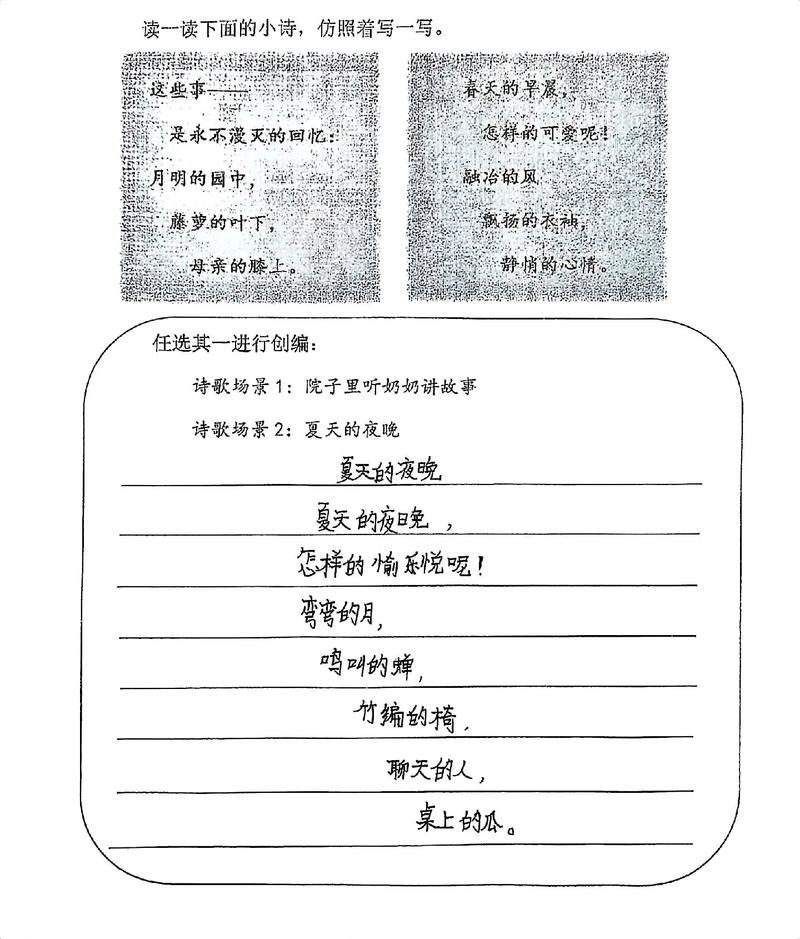 读一读下面的小诗，仿照着写一写。
这些事——
是永不漫灭的回忆：
月明的园中，
藤萝的叶下，
母亲的膝上。
春天的早晨，
怎样的可爱呢！
融冶的风，
飘扬的衣袖，
静悄的心情。
任选其一进行创编：
诗歌场景1：院子里听奶奶讲故事
诗歌场景2：夏天的夜晚
夏天的夜晚
夏天的夜晚，
怎样的愉乐悦呢！
弯弯的月，
鸣叫的蝉，
竹编的椅，
聊天的人，
桌上的瓜。